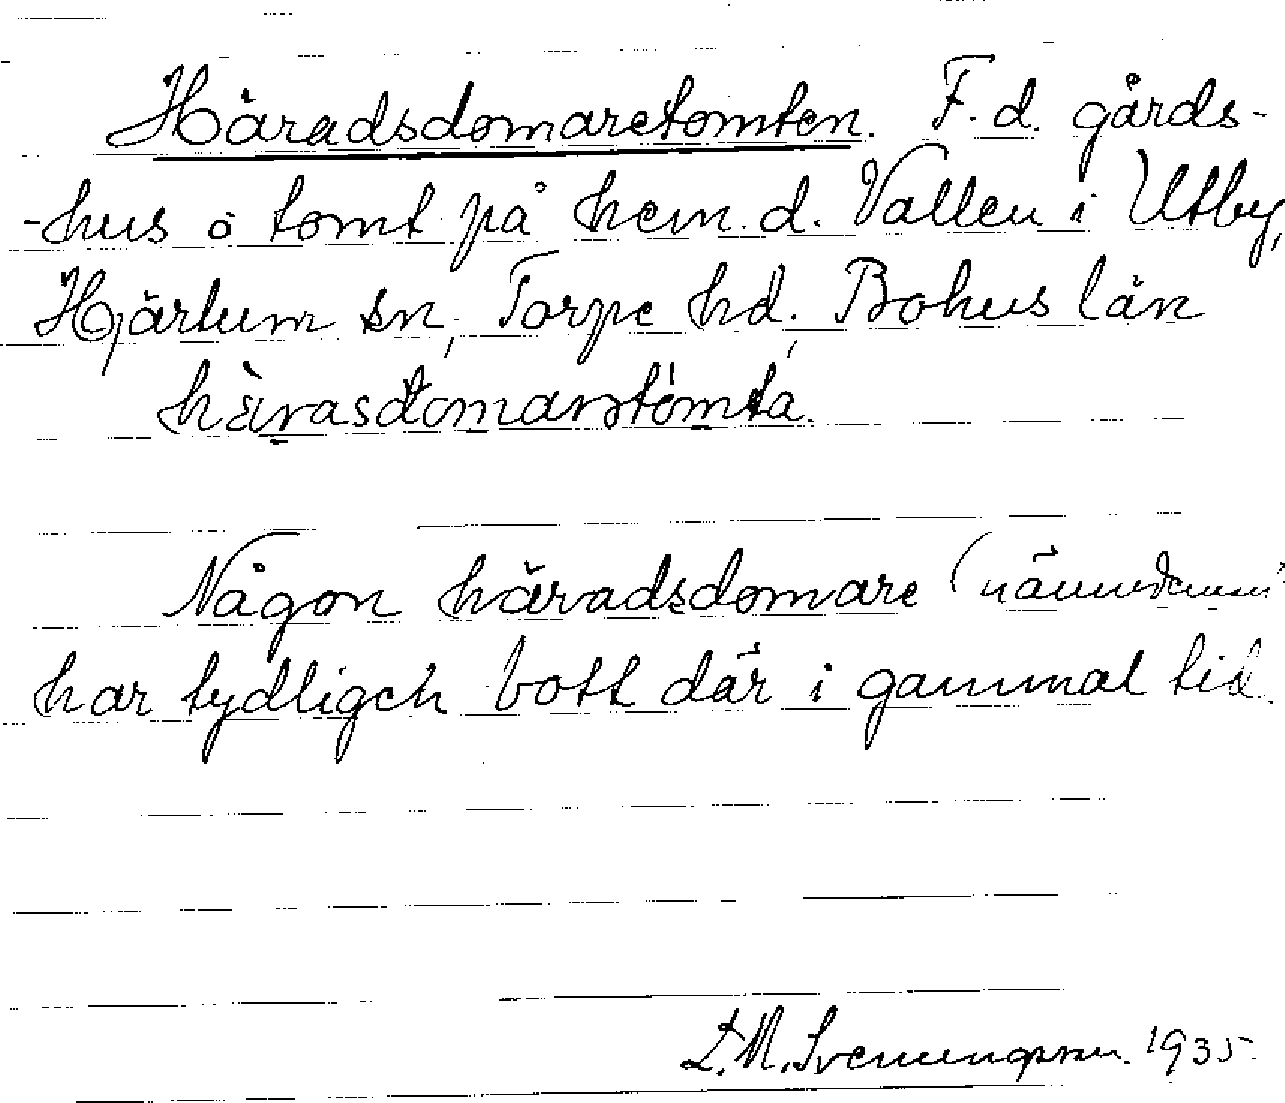 Häradsdomaretomten. F.d. gårds-
-hus o tomt på hem.d. Vallen i Utby,
Hjärtum sn, Torpe hd. Bohus län
häradsdomarstomta.
Någon häradsdomare (nämndeman)
har tydligen bott där i gammal tid.
Svenungsson. 1935